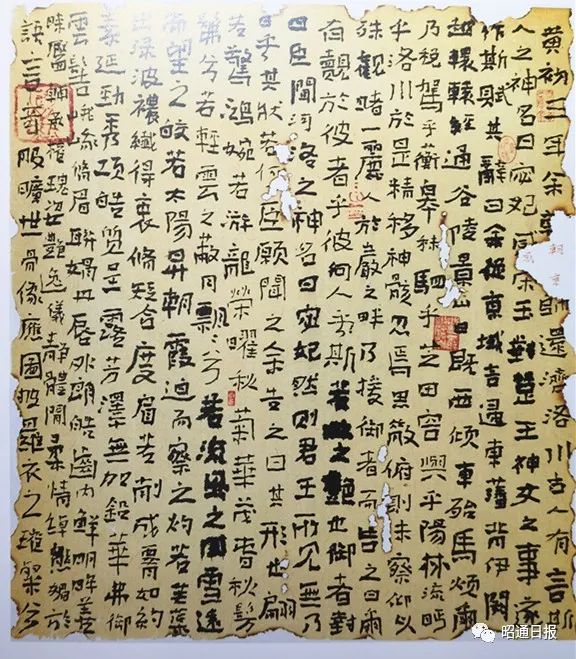 黄初三年余朝京師還濟洛川古人有言斯
人之神名曰宓妃感宋玉對楚王神女之事遂
作斯賦其辭曰余從京域言歸東藩背伊闕
越轘轅經通谷陵景山日既西傾車殆馬煩爾
乃税駕乎蘅皋秣駟乎芝田容與乎陽林流眄
乎洛川於是精移神骸忽焉思散俯則未察仰以
殊觀睹一麗人於巖之畔乃援御者而告之曰爾
有覿於彼者乎彼何人斯若此之艷也御者對
曰臣聞河洛之神名曰宓妃然則君王所見無乃
日乎其狀若何臣願聞之余告之曰其形也翩
若驚鴻婉若游龍榮曜秋菊華茂春秋髣
髴兮若輕雲之蔽月飄飄兮若流風之迴雪遠
而望之皎若太陽昇朝霞迫而察之灼若芙蕖
出渌波穠纖得衷修短合度肩若削成腰如約
素延頸秀項皓質呈露芳澤無加鉛華弗御
雲髻峨峨修眉聯娟丹唇外朗皓齒内鮮明眸善
睞靨輔承權瓌姿艷逸儀靜體閒柔情綽態媚於
語言奇服曠世骨像應圖披羅衣之璀粲兮
昭通日报